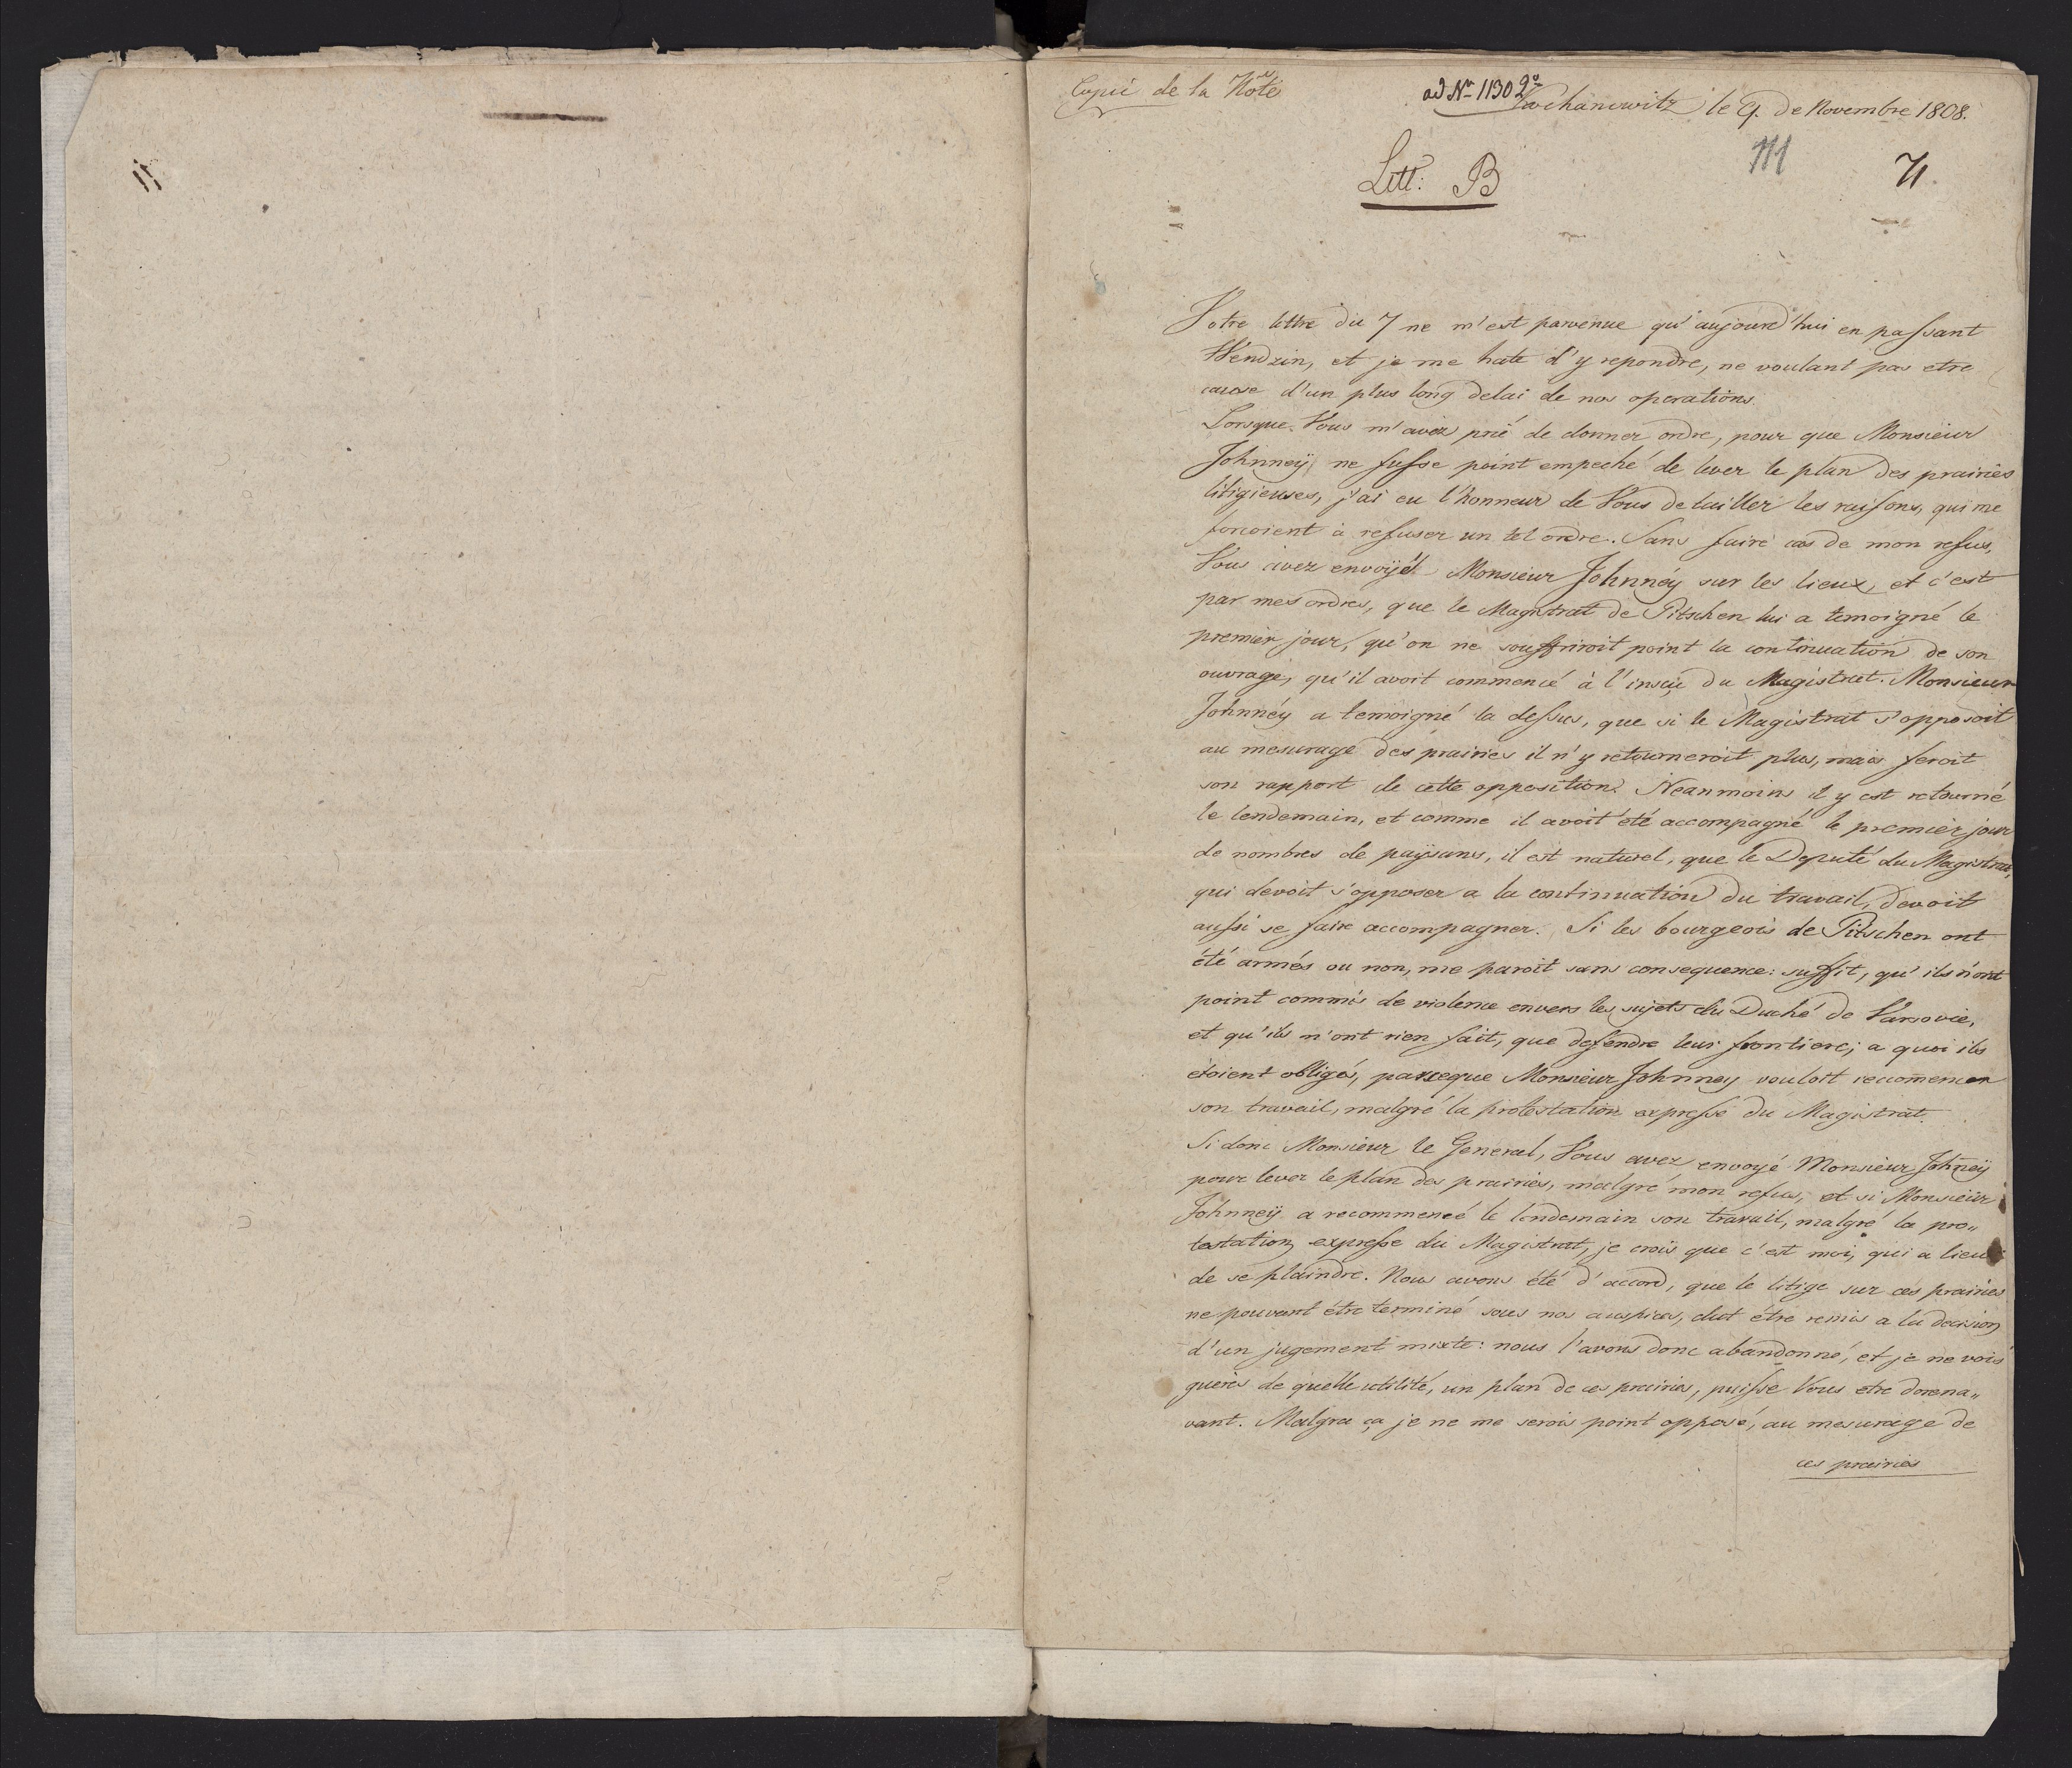 Copie de la Note
ad Nr 11302
Kochanowitz le 9. de Novembre 1808.
111 71
Litt: B
Votre lettre du 7 ne m'est parvenue qu'aujourd'hui en passant
Wendzin, et je me hate d'y repondre, ne voulant pas etre
cause d'un plus long delai de nos operations.
Lorsque Vous m'avez prié de donner ordre, pour que Monsieur
Johnneÿ ne fusse point empeché de lever le plan des prairies
litigieuses, j'ai eu l'honneur de Vous detailler les raisons, qui me
forcoient à refuser un tel ordre. Sans faire cas de mon refus,
Vous avez envoÿé Monsieur Johnnéy sur les lieux, et c'est
par mes ordres, que le Magistrat de Pitschen lui a temoigné le
premier jour, qu'on ne souffriroit point la continuation de son
ouvrage, qu'il avoit commencé à l'insçu du Magistrat. Monsieur
Johnnéy a temoigné la dessus, que si le Magistrat s'opposoit
au mesurage des prairies il n'y retourneroit plus, mais feroit
son rapport de cette opposition. Neanmoins il y est retourné
le lendemain, et comme il avoit été accompagné le premier jour
de nombres de paÿsans, il est naturel, que le Deputé du Magistrat,
qui devoit s'opposer a la continuation du travail, devoit
aussi se faire accompagner. Si les bourgeois de Pitschen ont
été armés ou non, me paroit sans consequence: suffit, qu'ils n'ont
point commis de violence envers les sujets du Duché de Varsovie,
et qu'ils n'ont rien fait, que defendre leur frontiere; a quoi ils
etoient obligés, parceque Monsieur Johnney vouloit recomencer
son travail, malgré la protestation expresse du Magistrat.
Si donc Monsieur le General, Vous avez envoyé Monsieur Johneÿ
pour lever le plan des prairies, malgré mon refus, et si Monsieur
Johnneÿ a recommencé le lendemain son travail, malgré la pro„
testation expresse du Magistrat, je crois que c'est moi, qui a lieu
de se plaindre. Nous avons été d'accord, que le litige sur ces prairies
ne pouvant être terminé sous nos auspices, dut être remis a la decision
d'un jugement mixte: nous l'avons donc abandonné, et je ne vois
gueres de quelle utilité, un plan de ces prairies, puisse Vous etre dorena„
vant. Malgra ça je ne me serois point opposé, au mesurage de
ces prairies